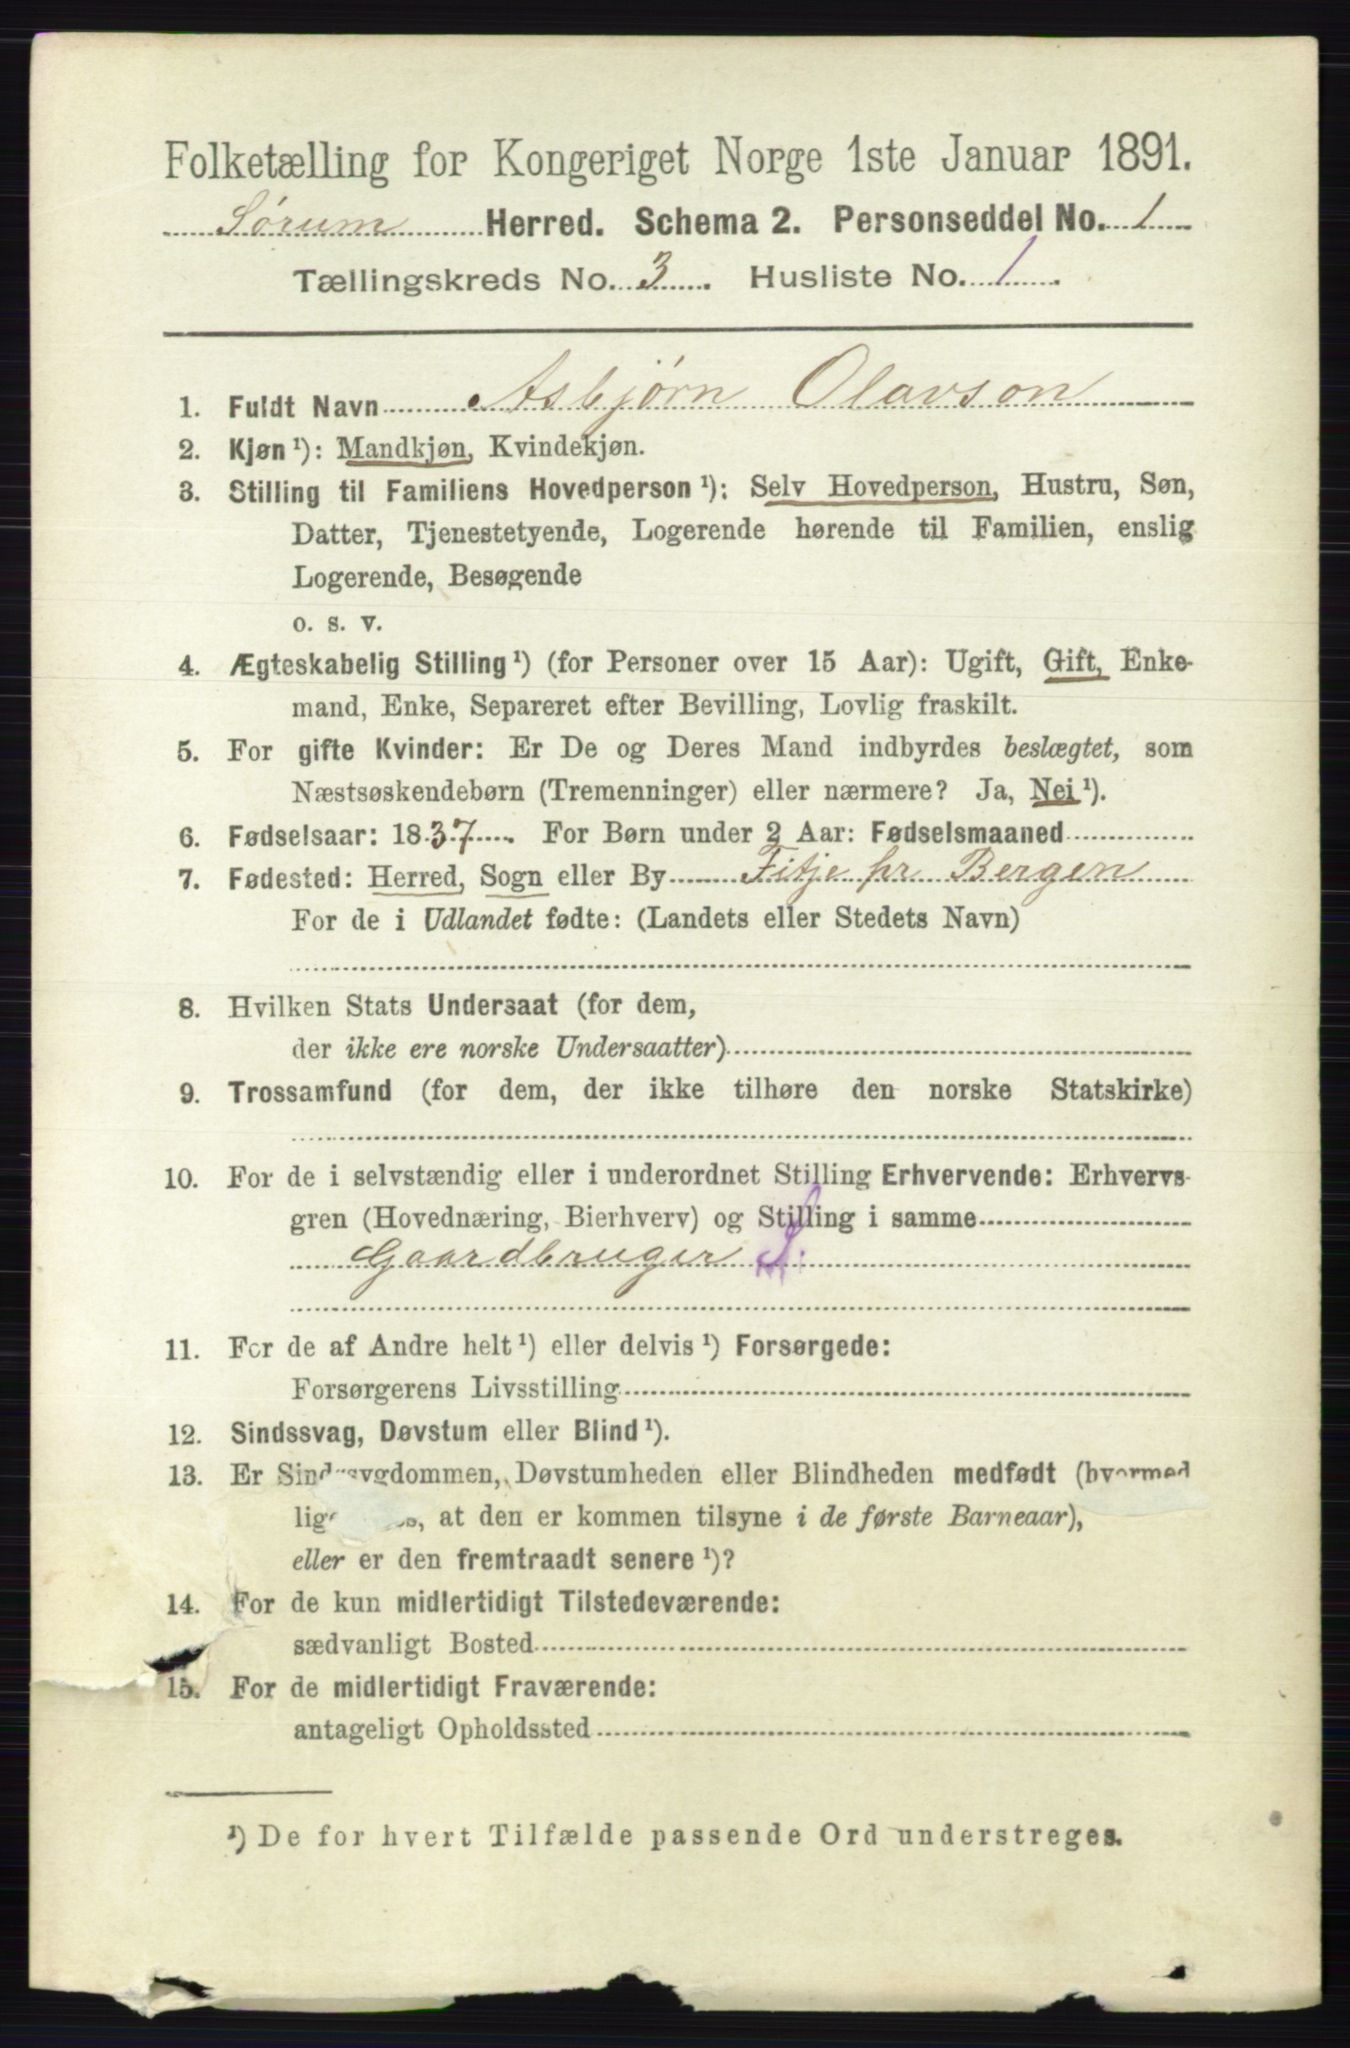 Folketælling for Kongeriget Norge 1ste Januar 1891.
Sørum Herred. Schema 2. Personseddel No. 1
Tællingskreds No. 3. Husliste No. 1.
1. Fuldt Navn Asbjørn Olavson
2. Kjøn ¹): Mandkjøn, Kvindekjøn.
3. Stilling til Familiens Hovedperson ¹): Selv Hovedperson, Hustru, Søn,
Datter, Tjenestetyende, Logerende hørende til Familien, enslig
Logerende, Besøgende
o. s. v.
4. Ægteskabelig Stilling ¹) (for Personer over 15 Aar): Ugift, Gift, Enke-
mand, Enke, Separeret efter Bevilling, Lovlig fraskilt.
5. For gifte Kvinder: Er De og Deres Mand indbyrdes beslægtet, som
Næstsøskendebørn (Tremenninger) eller nærmere? Ja, Nei ¹).
6. Fødselsaar: 1837. For Børn under 2 Aar: Fødselsmaaned
7. Fødested: Herred, Sogn eller By Fitje pr Bergen
For de i Udlandet fødte: (Landets eller Stedets Navn)
8. Hvilken Stats Undersaat (for dem,
der ikke ere norske Undersaatter)
9. Trossamfund (for dem, der ikke tilhøre den norske Statskirke)
10. For de i selvstændig eller i underordnet Stilling Erhvervende: Erhvervs-
gren (Hovednæring, Bierhverv) og Stilling i samme
Gaardbruger S.
11. For de af Andre helt ¹) eller delvis ¹) Forsørgede:
Forsørgerens Livsstilling
12. Sindssvag, Døvstum eller Blind ¹).
13. Er Sindssygdommen, Døvstumheden eller Blindheden medfødt (hvormed
at den er kommen tilsyne i de første Barneaar),
eller er den fremtraadt senere ¹)?
14. For de kun midlertidigt Tilstedeværende:
sædvanligt Bosted
15. For de midlertidigt Fraværende:
antageligt Opholdssted
¹) De for hvert Tilfælde passende Ord understreges.